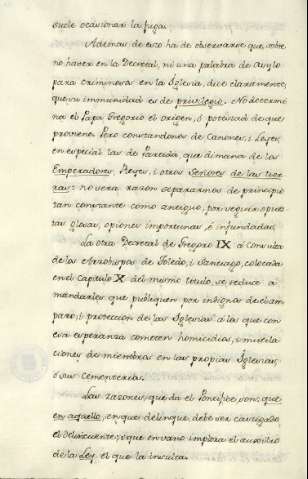 suele ocasionar la fuga.
Ademas de esto ha de observarse que sobre
no haver en la Decretal, ni una palabra de Asylo
para criminosos en la Iglesia, dice claramente,
que su immunidad es de privilegio. No determi
na el Papa Gregorio el origen, o potestad de que
proviene. Pero constandonos de Canones, i Leyes,
en especial las de Partida que dimana de los
Emperadores, Reyes, i otros Señores de las tier
ras: no sera razon separarnos de principio
tan constante como antiguo, por seguir opues
tas glosas, opiniones importunas é infundadas.
La otra Decretal de Gregorio IX à Consulta
de los Arzobispos de Toledo, i Santiago, colocada
en el capitulo X del mismo titulo, se reduce à
mandarles que publiquen por indigno de el am
paro, i proteccion de las Iglesias à los que con
esta esperanza cometen homicidios, o mutila
ciones de miembros en las propias Iglesias,
ó sus cementerios.
Las razones, que da el Pontifice son, que
en aquello, en que delinque, debe ser castigado
el delincuente; i que en vano implora el auxilio
de la Ley, el que la insulta.